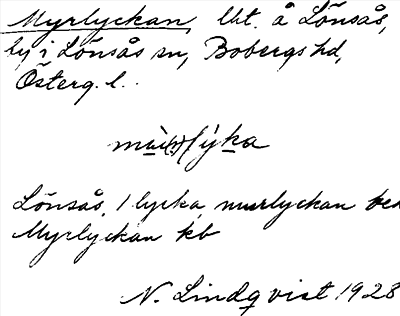 Myrlyckan, lht. å Lönsås,
by i Lönsås sn, Bobergs hd,
Österg. l.
Lönsås, 1 lycka, murlyckan ben
Myrlyckan kb
N. Lindqvist 1928